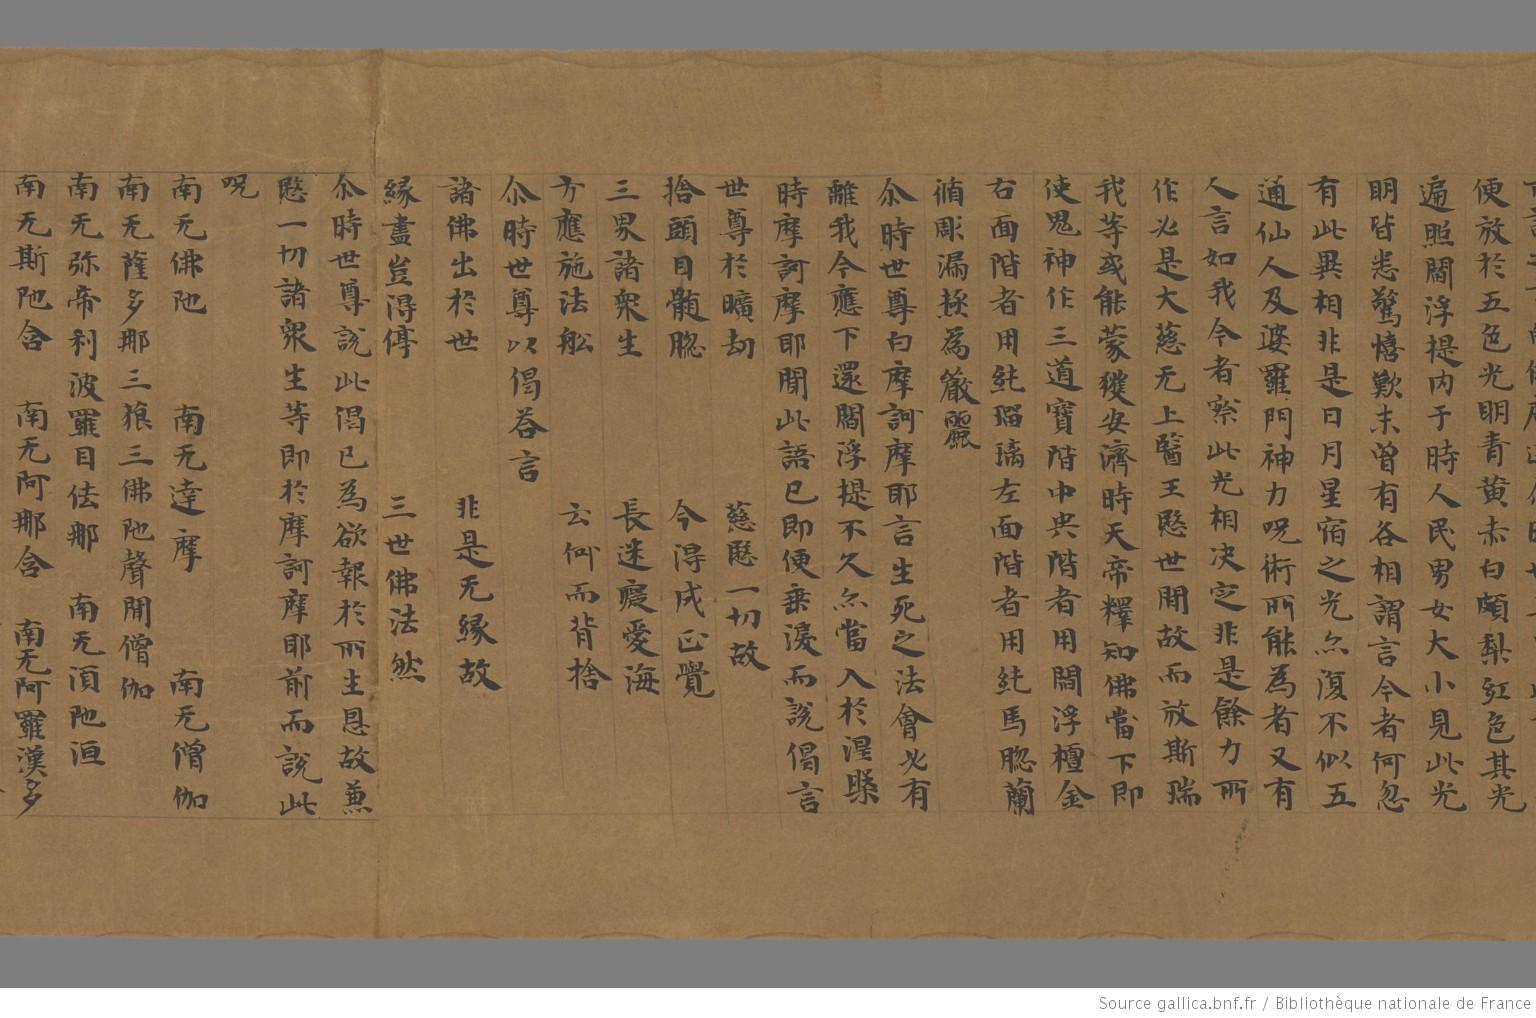 便放於五色光明青黄赤白頗梨紅色其光
遍照閻浮提内于時人民男女大小見此光
明皆悉驚愕歎未曾有各相謂言今者何忽
有此異相非是日月星宿之光尒復不似五
通仙人及婆羅門神力呪術所能為者又有
人言如我今者察此光相决定非是餘力所
作必是大慈无上醫王愍世間故而放斯瑞
我等或能蒙獲安濟時天帝釋知佛當下即
使鬼神作三道寳階中央階者用閻浮檀金
右面階者用純瑠璃左面階者用純馬𦜝蘭
脩彫漏極為嚴麗
尒時世尊白摩訶摩耶言生死之法會必有
離我今應下還閻浮提不久亦當入於涅槃
時摩訶摩耶聞此語已即便垂淚而說偈言
世尊於曠劫　慈愍一切故
捨頭目髓𦜝　今得成正覺
三界諸衆生　長迷癡愛海
方應施法舩　云何而背捨
尒時世尊以偈荅言
諸佛出於世　非是无緣故
緣盡豈得停　三世佛法然
尒時世尊說此偈已為欲報於所生恩故兼
愍一切諸衆生等即於摩訶摩耶前而說此
呪
南无佛陁　南无達摩　南无僧伽
南无薩多那三狼三佛陁聲聞僧伽
南无弥帝利波羅目佉那　南无湏陁洹
南无斯陁含　南无阿那含　南无阿羅漢多
Source gallica.bnf.fr / Bibliothèque nationale de France